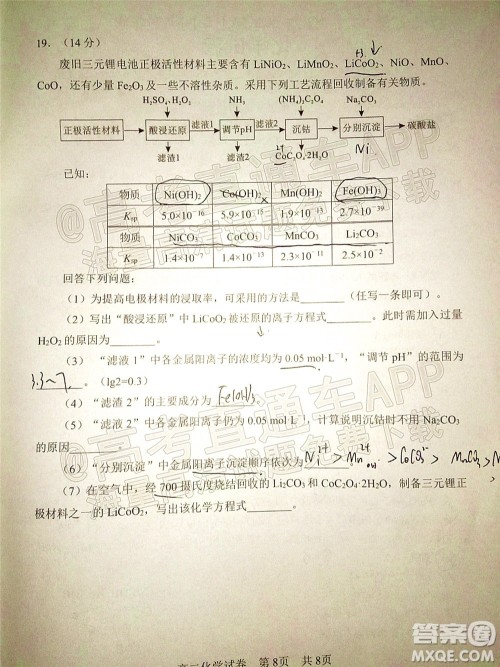 19. （14 分）
废旧三元锂电池正极活性材料主要含有 LiNiO₂、LiMnO₂、LiCoO₂、NiO、MnO、
CoO，还有少量 Fe₂O₃ 及一些不溶性杂质。采用下列工艺流程回收制备有关物质。
H₂SO₄、H₂O₂ NH₃ (NH₄)₂C₂O₄ Na₂CO₃
正极活性材料 酸浸还原 滤液1 调节pH 滤液2 沉钴 分别沉淀 碳酸盐
滤渣1 滤渣2 CoC₂O₄·2H₂O Ni
已知：
物质 Ni(OH)₂ Co(OH)₂ Mn(OH)₂ Fe(OH)₃
Ksp 5.0×10⁻¹⁶ 5.9×10⁻¹⁵ 1.9×10⁻¹³ 2.7×10⁻³⁹
物质 NiCO₃ CoCO₃ MnCO₃ Li₂CO₃
Ksp 1.4×10⁻⁷ 1.4×10⁻¹³ 2.3×10⁻¹¹ 2.5×10⁻²
回答下列问题：
（1）为提高电极材料的浸取率，可采用的方法是______（任写一条即可）。
（2）写出“酸浸还原”中 LiCoO₂ 被还原的离子方程式______，工业中常加入过量
H₂O₂ 的原因为______。
（3）“滤液 1”中各金属阳离子的浓度均为 0.05 mol·L⁻¹，“调节 pH”的范围为
3.3~7。（lg2=0.3）
（4）“滤渣 2”的主要成分为 Fe(OH)₃。
（5）“滤液 2”中各金属阳离子仍为 0.05 mol·L⁻¹，计算说明沉钴时不用 Na₂CO₃
的原因______
（6）“分别沉淀”中金属阳离子沉淀顺序依次为 Ni²⁺ > Mn²⁺
（7）在空气中，经 700 摄氏度烧结回收的 Li₂CO₃ 和 CoC₂O₄·2H₂O，制备三元锂正
极材料之一的 LiCoO₂，写出该化学方程式______。
高三化学试卷 第 8 页 共 8 页
@高考直通车APP
海量高清试题免费下载
答案圈